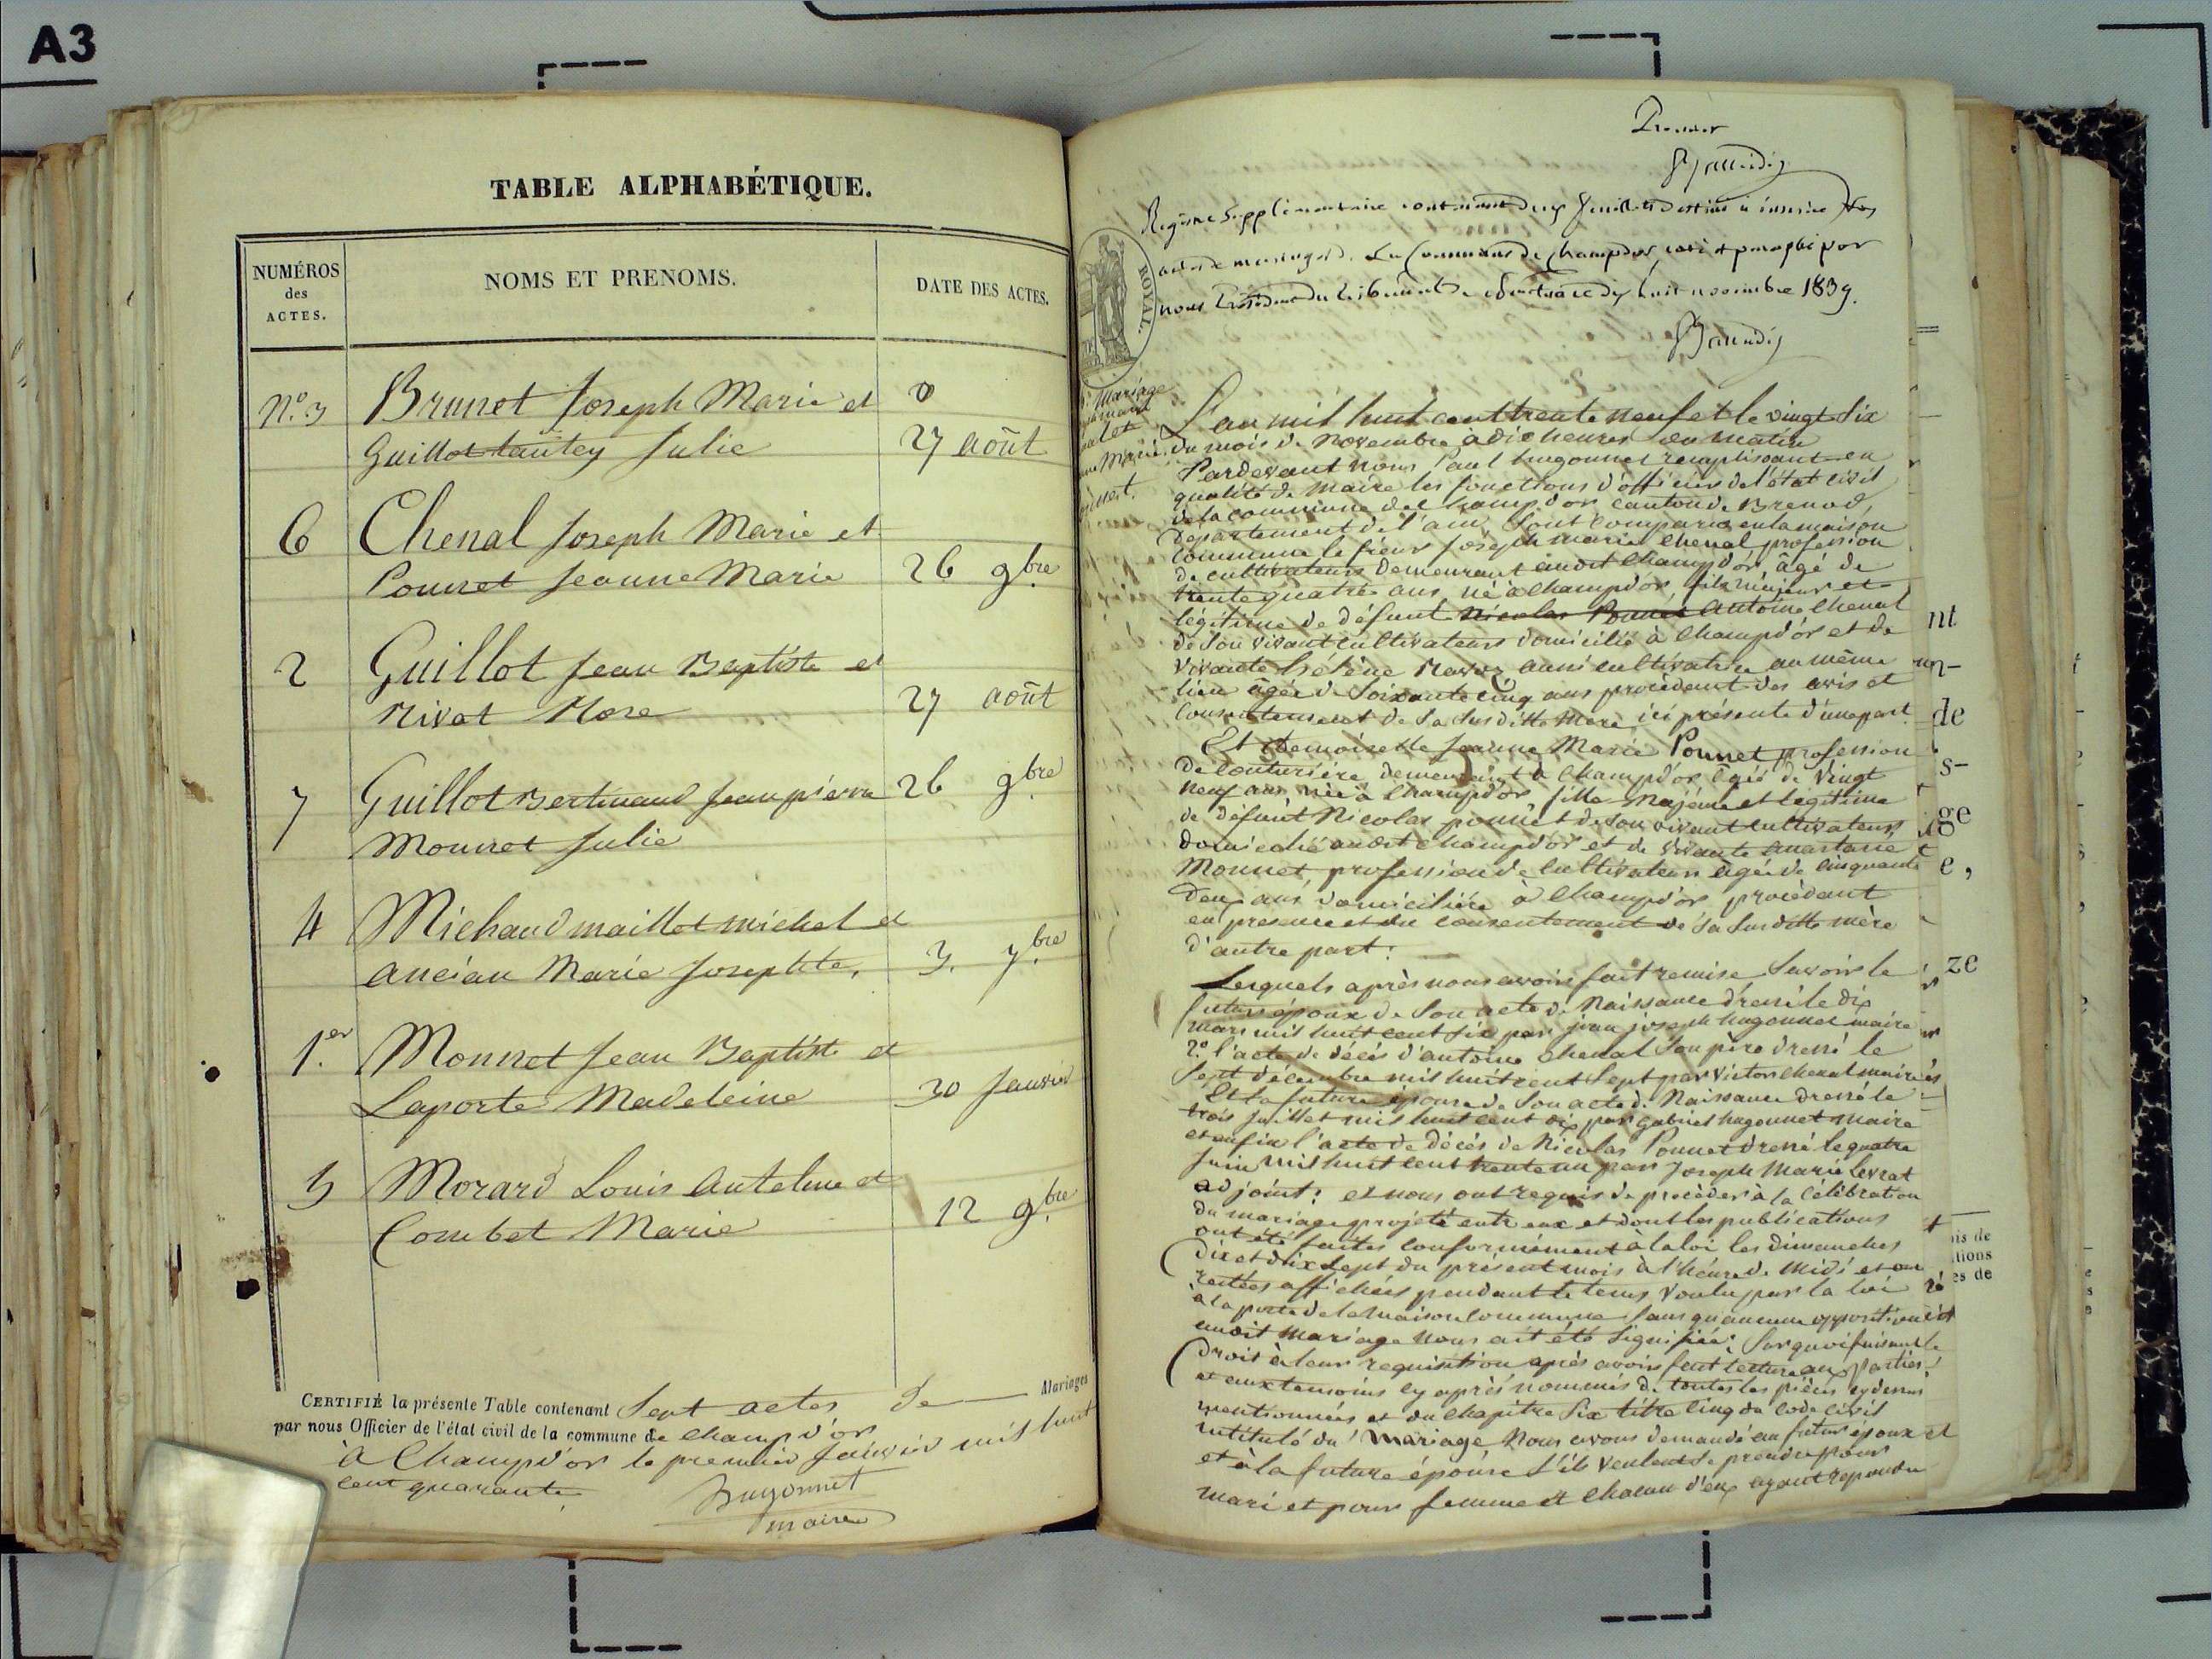 A3
TABLE ALPHABÉTIQUE.
NUMÉROS
des
ACTES.
NOMS ET PRENOMS.
DATE DES ACTES.
N.o 3 Brunet Joseph Marie et
Guillot tantey Julie 27 août
6 Chenal Joseph Marie et
Ponnet Jeanne Marie 26 9.bre
2 Guillot Jean Baptiste et
Rivat Rose 27 août
7 Guillot Bertinand Jean pierre 26 9.bre
Monnet Julie
4 Michaud maillot michel et
ancian Marie Josephte, 3. 7.bre
1.er Monnet Jean Baptiste et
Laporte Madeleine 30 Janvier
5 Morard Louis Antelme et
Combet Marie 12 9.bre
CERTIFIÉ la présente Table contenant Sept actes de Mariages
par nous Officier de l'état civil de la commune de Champd'or
à Champd'or le premier Janvier mil huit
cent quarante.
hugonnet
maire
Premier
Registre Supplémentaire contenant deux feuillets destiné à inscrire les
actes de mariages de la Commune de Champdor, coté et paraphé par
nous Président du tribunal de Nantua ce dix huit novembre 1839.
ROYAL.
Mariage
L'an mil huit cent trente neuf et le vingt Six
du mois de Novembre à dix heures du matin
Pardevant nous Paul hugonnet remplissant en
qualité de maire les fonctions d'officier de l'état civil
de la commune de Champd'or canton de Brenod,
Département de l'ain, Sont comparus en la maison
commune le Sieur Joseph marie Chenal profession
de cultivateur demeurant audit Champd'or, âgé de
trente quatre ans, né à Champd'or, fils majeur et
légitime de défunt Nicolas Ponnet Antoine Chenal
de Son vivant cultivateur domicilié à Champd'or et de
vivante hélène Ravoz, aussi cultivatrice au même
lieu âgée de Soixante cinq ans procédant des avis et
Consentement de Sa Susditte Mère ici présente d'une part.
Et Demoiselle Jeanne Marie Ponnet profession
de couturière demeurant à Champd'or âgée de vingt
neuf ans née à Champd'or fille Majeure et légitime
de défunt Nicolas ponnet de Son vivant cultivateur
domicilié audit Champd'or et de vivante anastasie
Monnet profession de cultivateur âgée de cinquante
deux ans domiciliée à Champd'or procédant
en présence et du consentement de Sa Susditte mère
d'autre part.
Lesquels après nous avoir fait remise Savoir le
futur époux de Son acte de Naissance dressé le dix
mars mil huit cent Six par jean joseph hugonnet maire
2.o l'acte de décès d'antoine Chenal Son père dressé le
Sept décembre mil huit cent Sept par Victor Chenal maire
Et la future épouse de Son acte de Naissance dressé le
trois Juillet mil huit cent dix par Gabriel hugonnet Maire
et enfin l'acte de décès de Nicolas Ponnet dressé le quatre
Juin mil huit cent trente un par Joseph Marie levrat
adjoint; et nous ont requis de procéder à la célébration
du mariage projeté entr'eux et dont les publications
ont été faites conformément à la loi les dimanches
dix et dix Sept du présent mois à l'heure de Midi et ont
restées affichées pendant le tems voulu par la loi
à la porte de la maison commune Sans qu'aucune opposition
audit Mariage Nous ait été Signifiée; Sur quoi faisant
droit à leur requisition après avoir fait lecture aux parties
et aux temoins cy après nommés de toutes les pièces cy dessus
mentionnées et du chapitre Six titre cinq du code civil
intitulé du Mariage Nous avons demandé au futur époux et
et à la future épouse S'ils veulent Se prendre pour
mari et pour femme et chacun d'eux ayant repondu
nt
de
s-
ge
e,
ze
is de
tions
es de